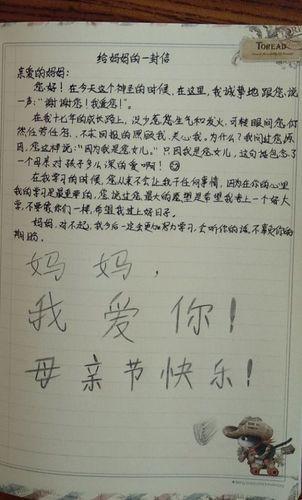 TOREAD
给妈妈的一封信
亲爱的妈妈：
您好！在今天这个神圣的时候，在这里，我诚挚地跟您说
一声：“谢谢您！我爱您！”。
在我十七年的成长路上，没少惹您生气和发火，可转眼间您仍
然任劳任怨、不求回报的照顾我，关心我。为什么？我问过您原
因，您这样说：“因为我是您女儿。”只因我是您女儿，这句话包含了
一个母亲对孩子多么深的爱啊！
在我学习的时候，您从来不会让我干任何事情，因为在你的心里
我的学习是最重要的，您说过您最大的愿望是希望我考上一个好大
学，不要像你们一样，希望我过上好日子。
妈妈，对不起，我今后一定会更加努力学习，会听你的话，不辜负你的
期望。
妈妈，
我爱你！
母亲节快乐！